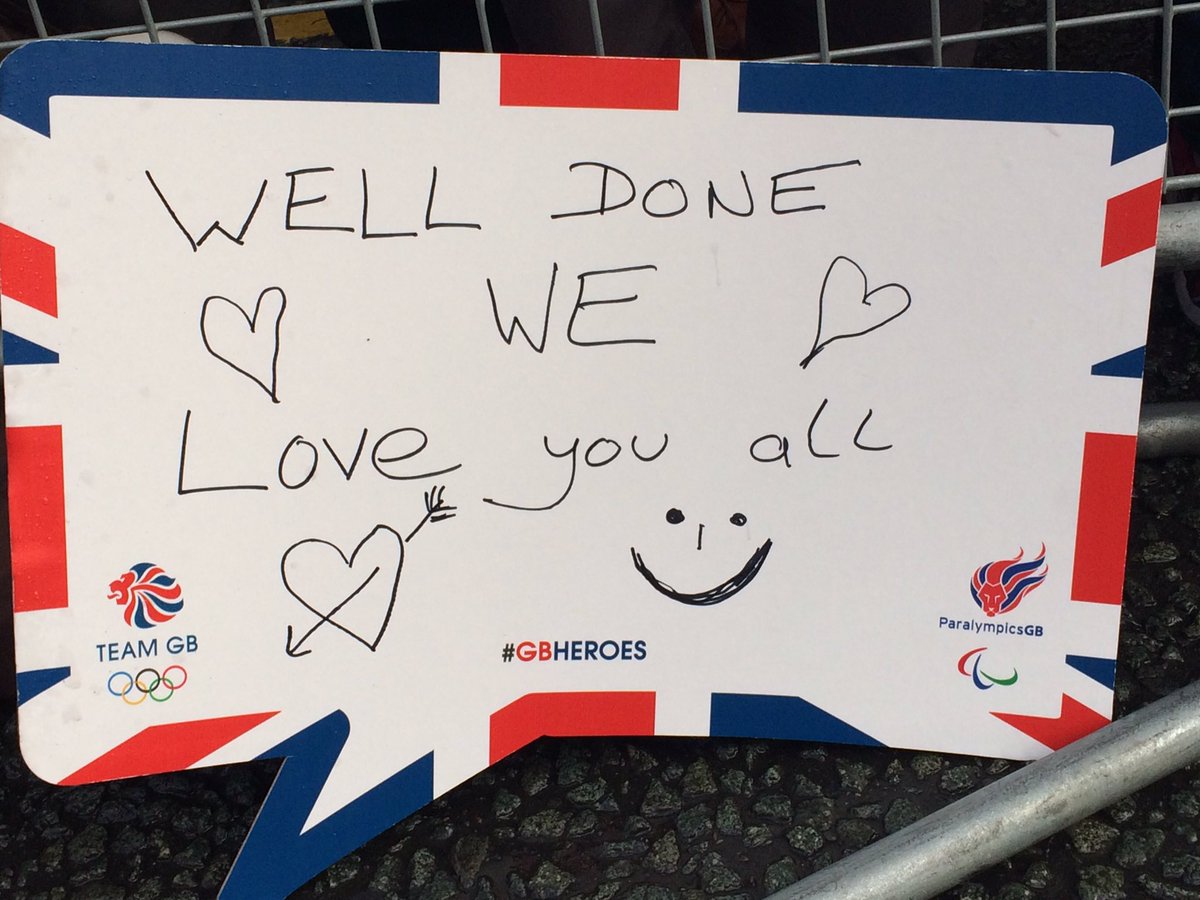 WELL DONE
WE
Love you all
TEAM GB
#GBHEROES
ParalympicsGB